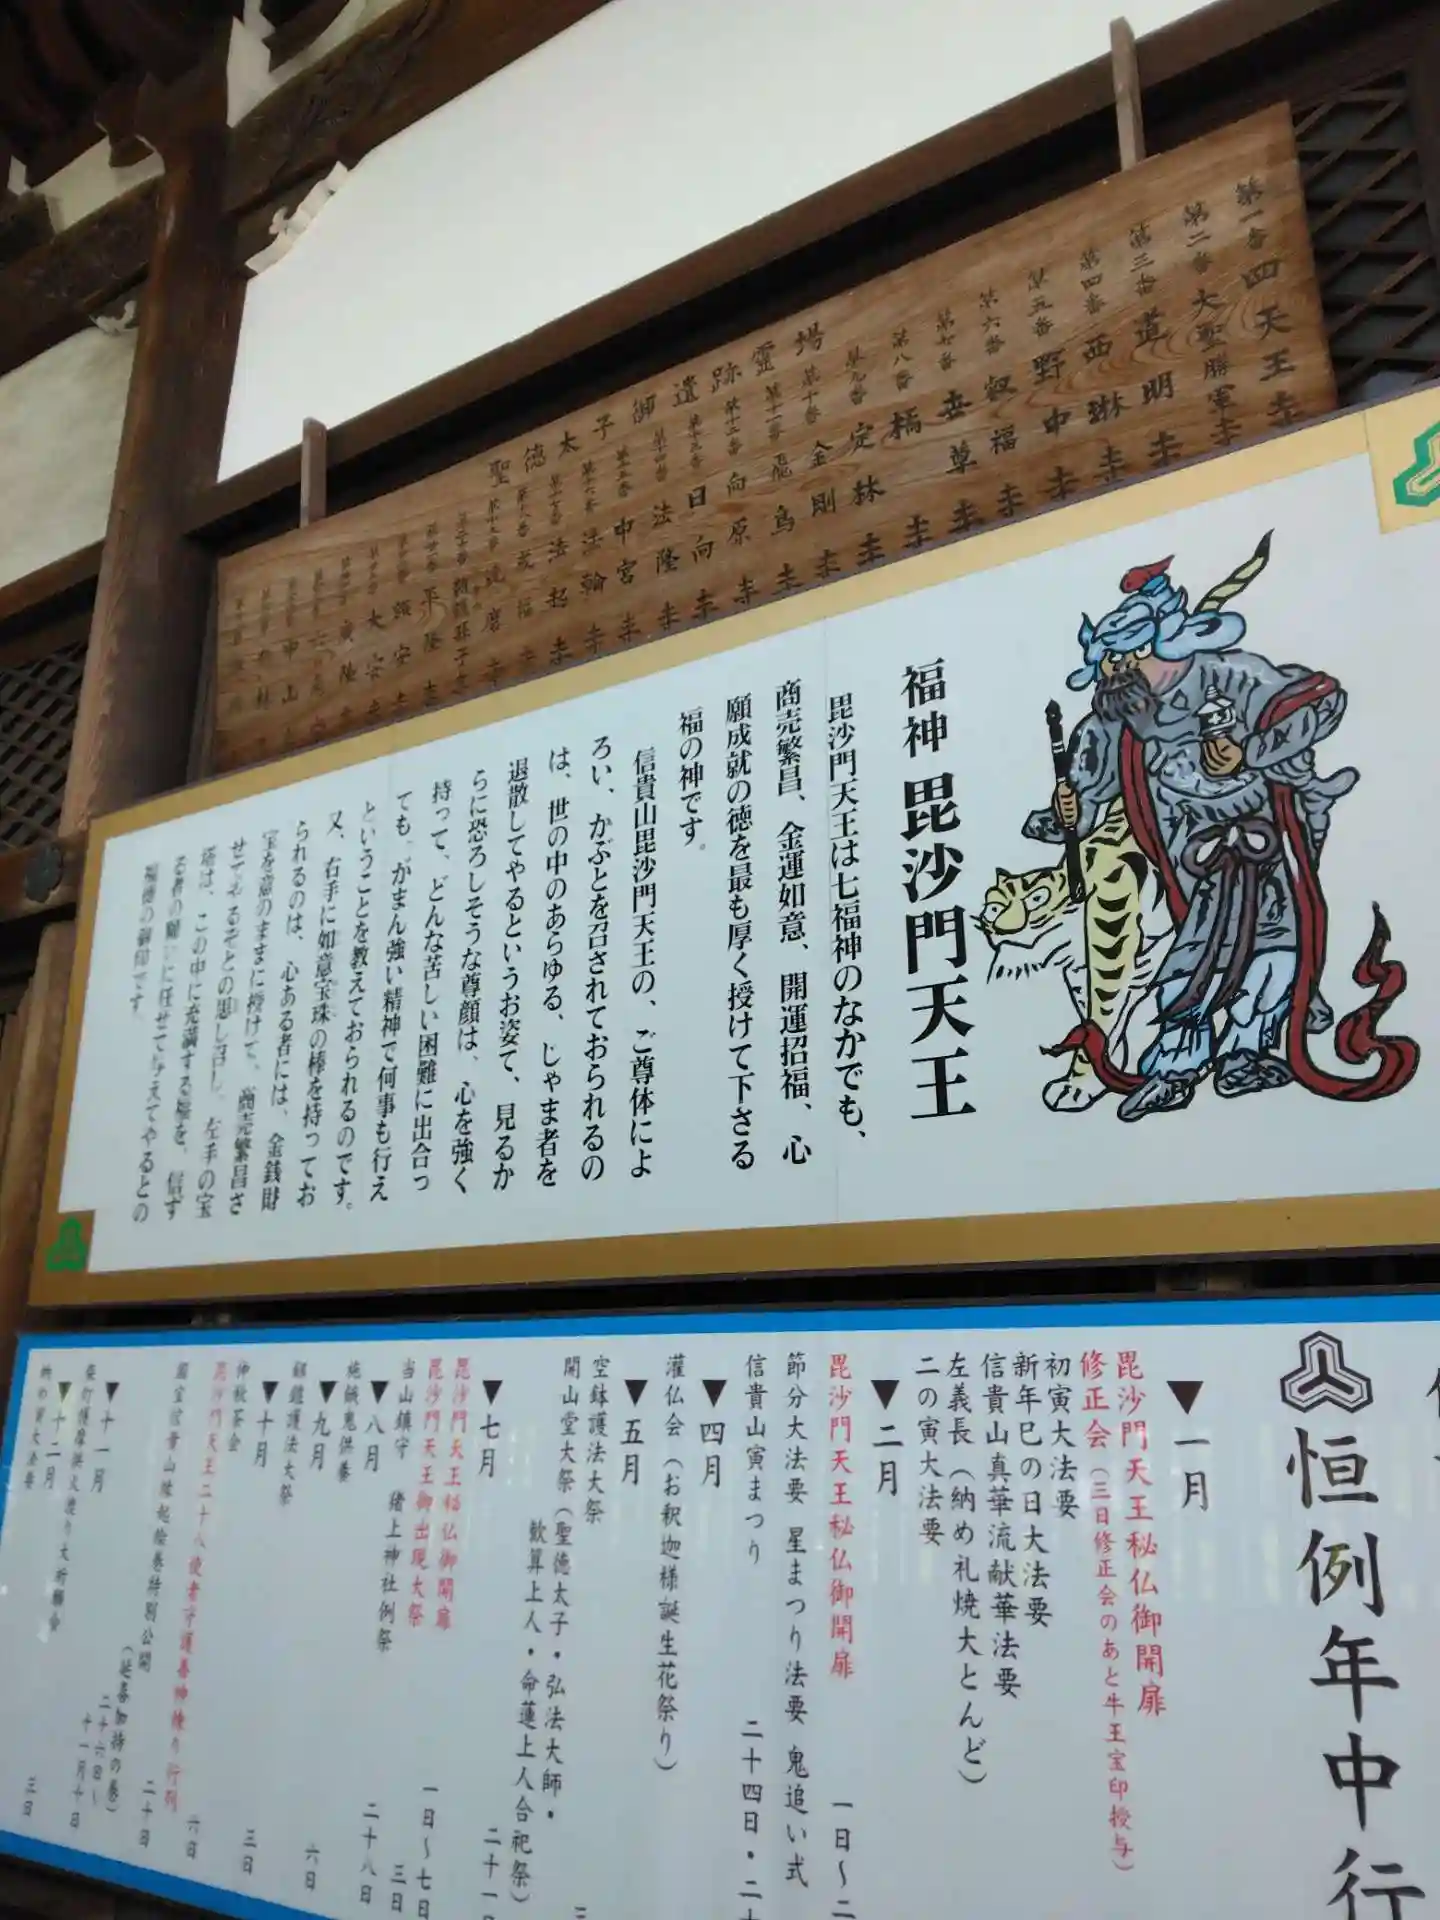 聖徳太子御遺跡霊場
第一番 四天王寺
第二番 大聖勝軍寺
第三番 道明寺
第四番 西琳寺
第五番 野中寺
第六番 叡福寺
第七番 世尊寺
第八番 橘寺
第九番 定林寺
第十番 金剛寺
第十一番 飛鳥寺
第十二番 向原寺
第十三番 日向寺
第十四番 法隆寺
第十五番 中宮寺
第十六番 法輪寺
第十七番 法起寺
第十八番 成福寺
第十九番 達磨寺
福神 毘沙門天王
毘沙門天王は七福神のなかでも、
商売繁昌、金運如意、開運招福、心
願成就の徳を最も厚く授けて下さる
福の神です。
信貴山毘沙門天王の、ご尊体によ
ろい、かぶとを召されておられるの
は、世の中のあらゆる、じゃま者を
退散してやるというお姿で、見るか
らに恐ろしそうな尊顔は、心を強く
持って、どんな苦しい困難に出合っ
ても、がまん強い精神で何事も行え
ということを教えておられるのです。
又、右手に如意宝珠の棒を持ってお
られるのは、心ある者には、金銭財
宝を意のままに授けて、商売繁昌さ
せてやるぞとの思し召し、左手の宝
塔は、この中に充満する福を、信ず
る者の願いに任せて与えてやるとの
福徳の御印です。
恒例年中行
▼一月
毘沙門天王秘仏御開扉
修正会（三日修正会のあと牛王宝印授与）
初寅大法要
新年巳の日大法要
信貴山真華流献華法要
左義長（納め札焼大とんど）
二の寅大法要
▼二月
毘沙門天王秘仏御開扉 一日〜二
節分大法要 星まつり法要 鬼追い式
信貴山寅まつり 二十四日・二十
▼四月
灌仏会（お釈迦様誕生花祭り）
▼五月
空鉢護法大祭
開山堂大祭（聖徳太子・弘法大師・
歓算上人・命蓮上人合祀祭）
▼七月
毘沙門天王秘仏御開扉 一日〜七日
毘沙門天王御出現大祭 三日
当山鎮守 猪上神社例祭 二十八日
▼八月
施餓鬼供養
▼九月
剱鎧護法大祭 六日
▼十月
仲秋茶会 三日
毘沙門天王二十八使者守護善神練り行列 六日
国宝信貴山縁起絵巻特別公開
（延喜加持の巻）
▼十一月
柴灯護摩供火渡り大祈願会 二十日
▼十二月
納の寅大法要